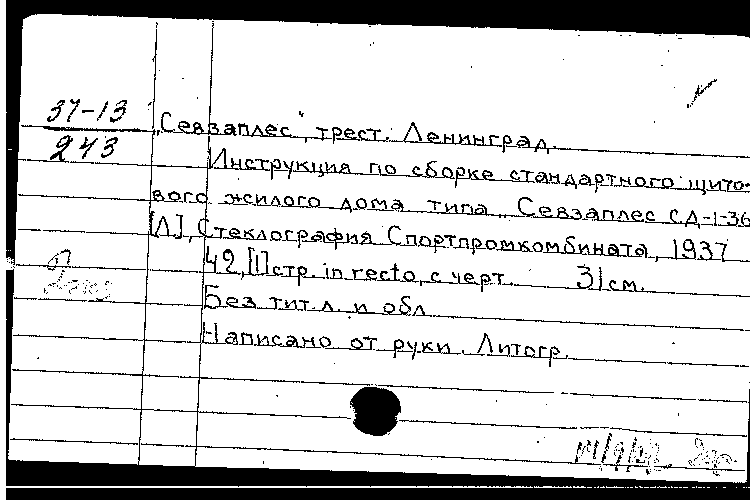 37-13
243
„Севзаплес", трест. Ленинград.
Инструкция по сборке стандартного щито-
вого жилого дома типа „Севзаплес СД-1-36
[Л], Стеклография Спортпромкомбината, 1937
42, [1] стр. in recto, с черт. 31 см.
Без тит. л. и обл
Написано от руки. Литогр.